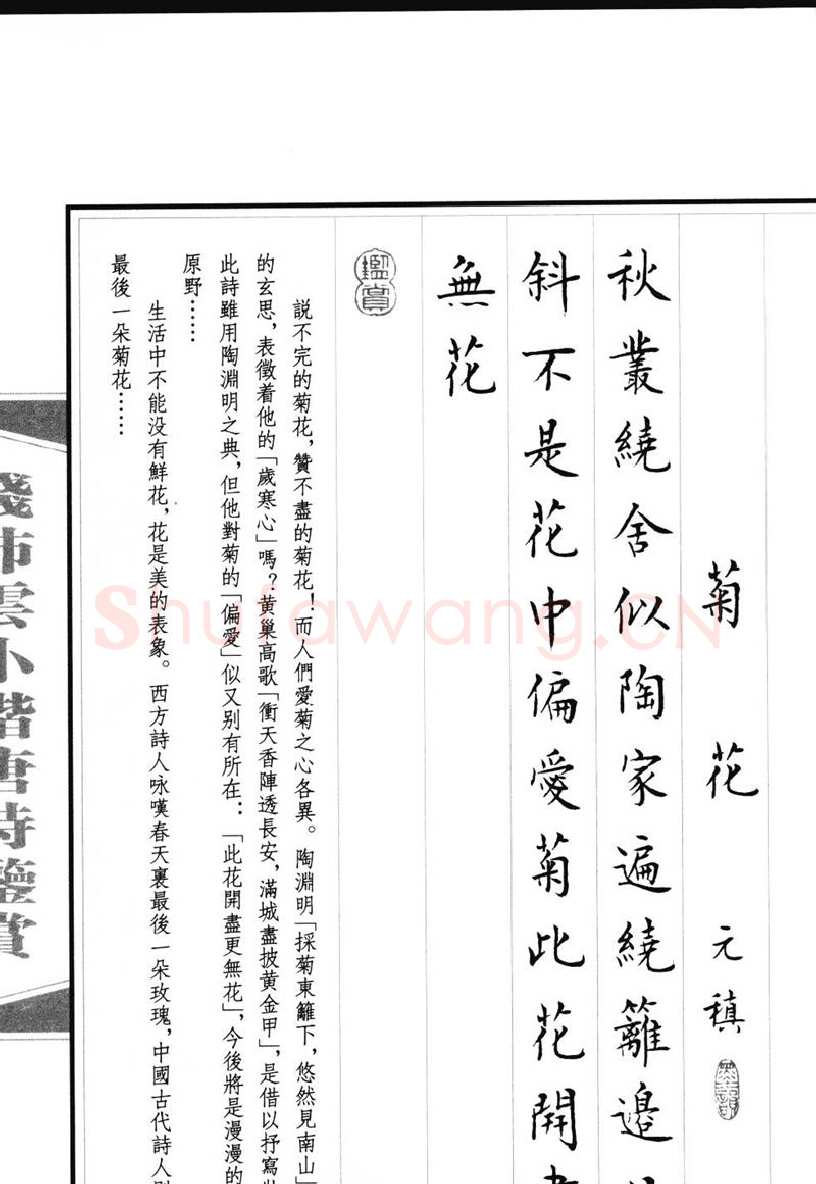 菊花 元稹
秋叢繞舍似陶家遍繞籬邊
斜不是花中偏愛菊此花開
無花
鑑賞
說不完的菊花，贊不盡的菊花！而人們愛菊之心各異。陶淵明「採菊東籬下，悠然見南山」
的玄思，表徵着他的「歲寒心」嗎？黄巢高歌「衝天香陣透長安，滿城盡披黄金甲」，是借以抒寫
此詩雖用陶淵明之典，但他對菊的「偏愛」似又别有所在：「此花開盡更無花」，今後將是漫漫的
原野……
生活中不能没有鮮花，花是美的表象。西方詩人咏嘆春天裏最後一朵玫瑰，中國古代詩人
最後一朵菊花……
錢沛雲小楷唐詩鑒賞
Shufawang.CN